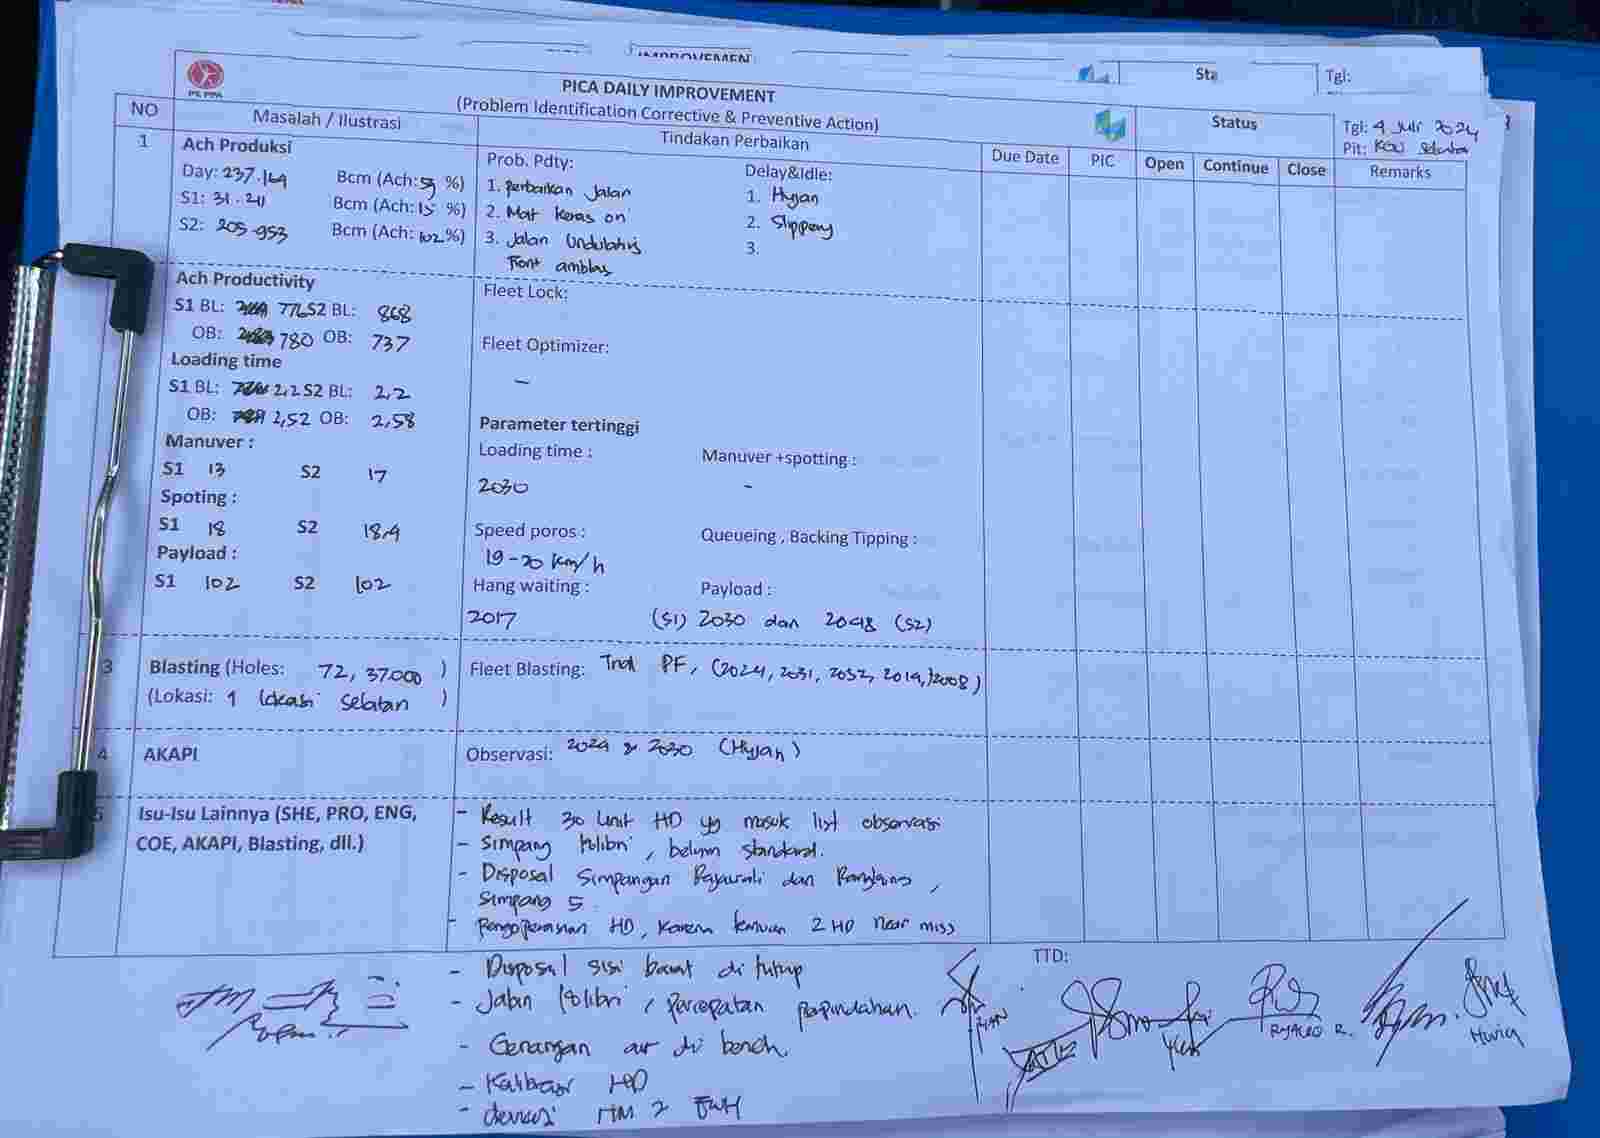 IMPROVEMEN
Sta
Tgl:
PICA DAILY IMPROVEMENT
(Problem Identification Corrective & Preventive Action)
NO
Masalah / Ilustrasi
Tindakan Perbaikan
Due Date
PIC
Status
Open
Continue
Close
Tgl: 4 Juli 2024
Pit:
Remarks
1
Ach Produksi
Day: 237.169 Bcm (Ach: 59 %)
S1: 31.211 Bcm (Ach: 15 %)
S2: 205.953 Bcm (Ach: 102 %)
Prob. Pdty:
1. perbaikan Jalan
2. Mat keras on
3. Jalan Undulating
Font amblas
Delay&Idle:
1. Hujan
2. Slippery
3.
Ach Productivity
S1 BL: 776 S2 BL: 868
OB: 780 OB: 737
Loading time
S1 BL: 2,2 S2 BL: 2,2
OB: 2,52 OB: 2,58
Manuver :
S1 13 S2 17
Spoting :
S1 18 S2 18.4
Payload :
S1 102 S2 102
Fleet Lock:
Fleet Optimizer:
-
Parameter tertinggi
Loading time :
2030
Manuver +spotting :
-
Speed poros :
19-20 km/h
Queueing , Backing Tipping :
Hang waiting :
2017
Payload :
(S1) 2030 dan 2048 (S2)
3
Blasting (Holes: 72, 37.000 )
(Lokasi: 1 lokasi selatan )
Fleet Blasting: Trial PF, (2024, 2031, 2032, 2019, 2008)
4
AKAPI
Observasi: 2024 & 2030 (Hujan)
5
Isu-Isu Lainnya (SHE, PRO, ENG,
COE, AKAPI, Blasting, dll.)
- Result 30 Unit HD yg masuk list observasi
- Simpang kolibri, belum standard.
- Disposal Simpangan Rajawali dan
Simpang 5
- Pengoperasian HD, karena temuan 2 HD near miss
- Disposal sisi barat di tutup
- Jalan kolibri, percepatan perpindahan.
- Genangan air di bench.
- Kalibrasi HD
- deviasi HM 2 EWH
TTD:
RYALDO R.